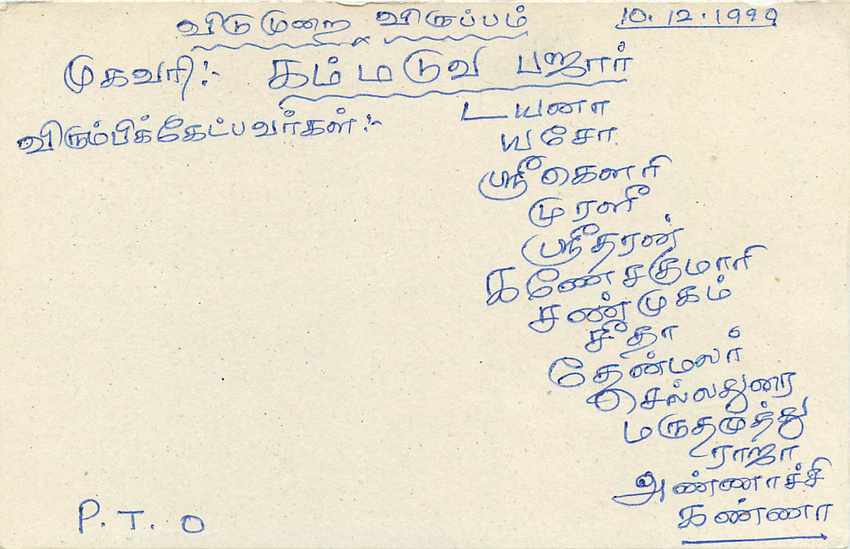 விடுமுறை விருப்பம் 10.12.1999
முகவரி:- கம்மடுவ பஜார்
விரும்பிக்கேட்பவர்கள்:- டயனா
யசோ
ஸ்ரீகௌரி
முரளீ
ஸ்ரீதரன்
கணேசகுமாரி
சண்முகம்
சீதா
தேன்மலர்
செல்லதுரை
மருதமுத்து
ராஜா
அண்ணாச்சி
கண்ணா
P. T. O